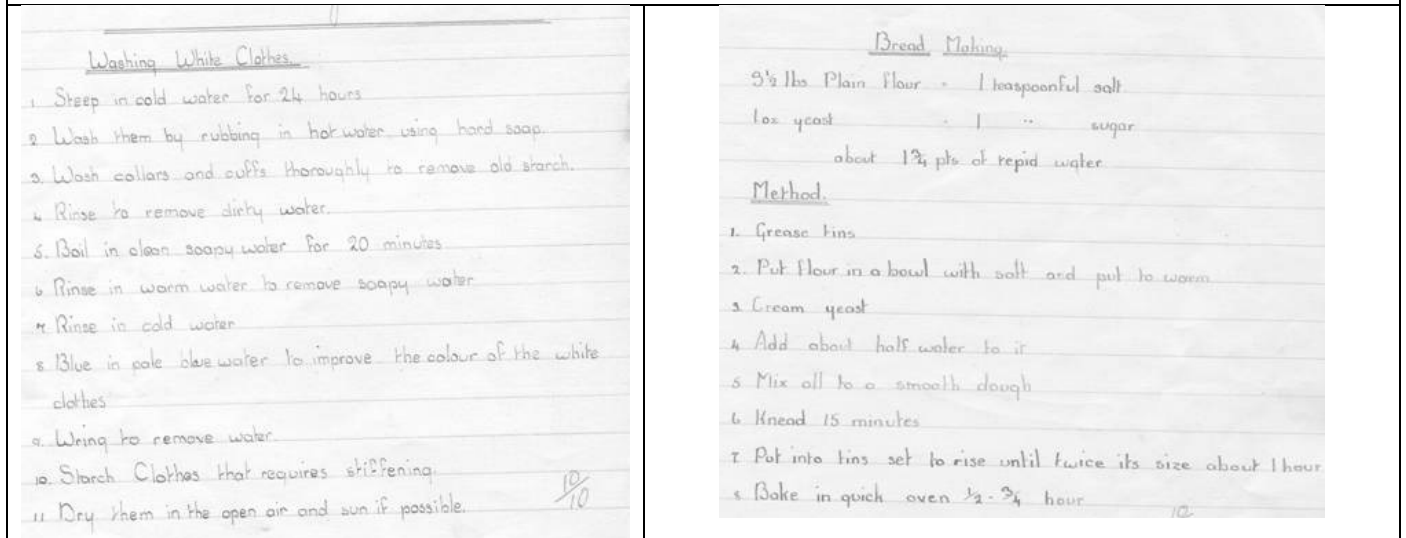 Washing White Clothes
1 Steep in cold water for 24 hours
2 Wash them by rubbing in hot water using hard soap.
3. Wash collars and cuffs thoroughly to remove old starch.
4 Rinse to remove dirty water.
5. Boil in clean soapy water for 20 minutes
6 Rinse in warm water to remove soapy water
7 Rinse in cold water
8 Blue in pale blue water to improve the colour of the white
clothes
9. Wring to remove water
10. Starch Clothes that requires stiffening.
11 Dry them in the open air and sun if possible.
10/10
Bread Making
3½ lbs Plain flour - 1 teaspoonful salt
1oz yeast - 1 " sugar
about 1¾ pts of tepid water
Method.
1. Grease tins
2. Put flour in a bowl with salt and put to warm
3 Cream yeast
4 Add about half water to it
5 Mix all to a smooth dough
6 Knead 15 minutes
7 Put into tins set to rise until twice its size about 1 hour
8 Bake in quick oven ½ - ¾ hour
10